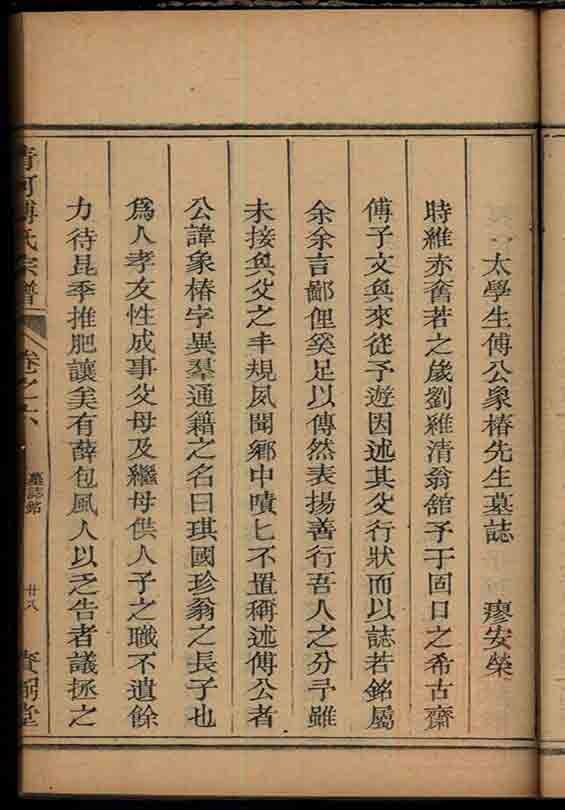 太學生傅公象椿先生墓誌 廖安榮
時維赤奮若之歲劉維清翁舘予于固口之希古齋
傅子文與來從予遊因述其父行狀而以誌若銘屬
余余言鄙俚奚足以傳然表揚善行吾人之分予雖
未接與父之丰規夙聞鄉中嘖匕不置稱述傅公者
公諱象椿字異羣通籍之名曰琪國珍翁之長子也
爲人孝友性成事父母及繼母供人子之職不遺餘
力待昆季推肥讓美有薛包風人以乏告者議拯之
清河傅氏宗譜 卷之六 墓誌銘 廿八